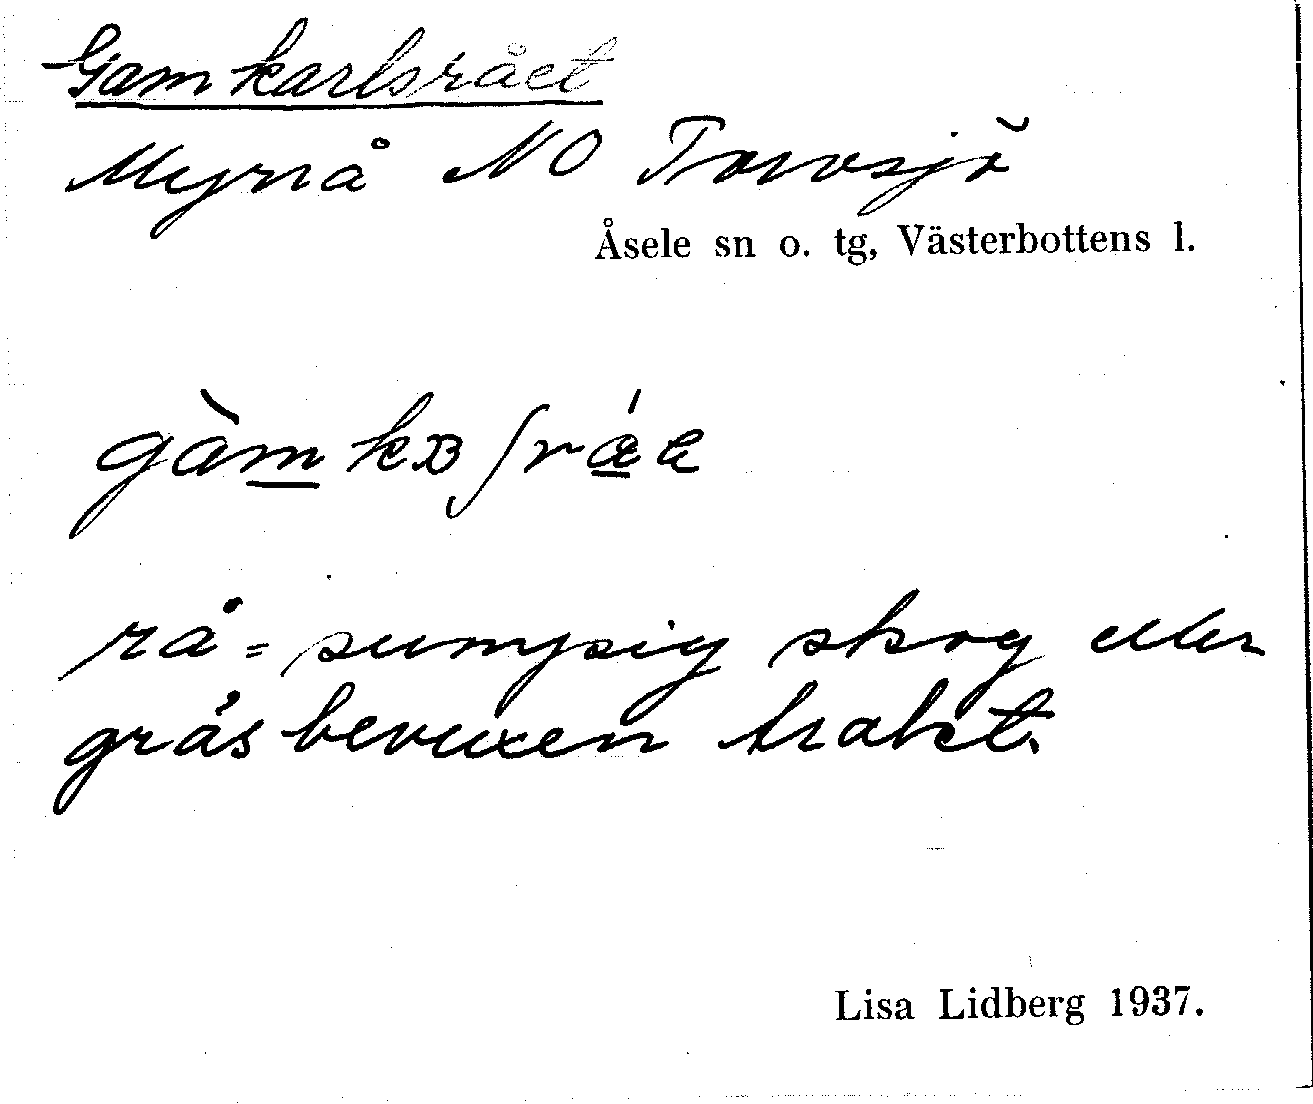 Gamkarlsrået
Myrrå NO Torvsjö
Åsele sn o. tg, Västerbottens l.
rå = sumpig skog eller
gräsbevuxen trakt.
Lisa Lidberg 1937.